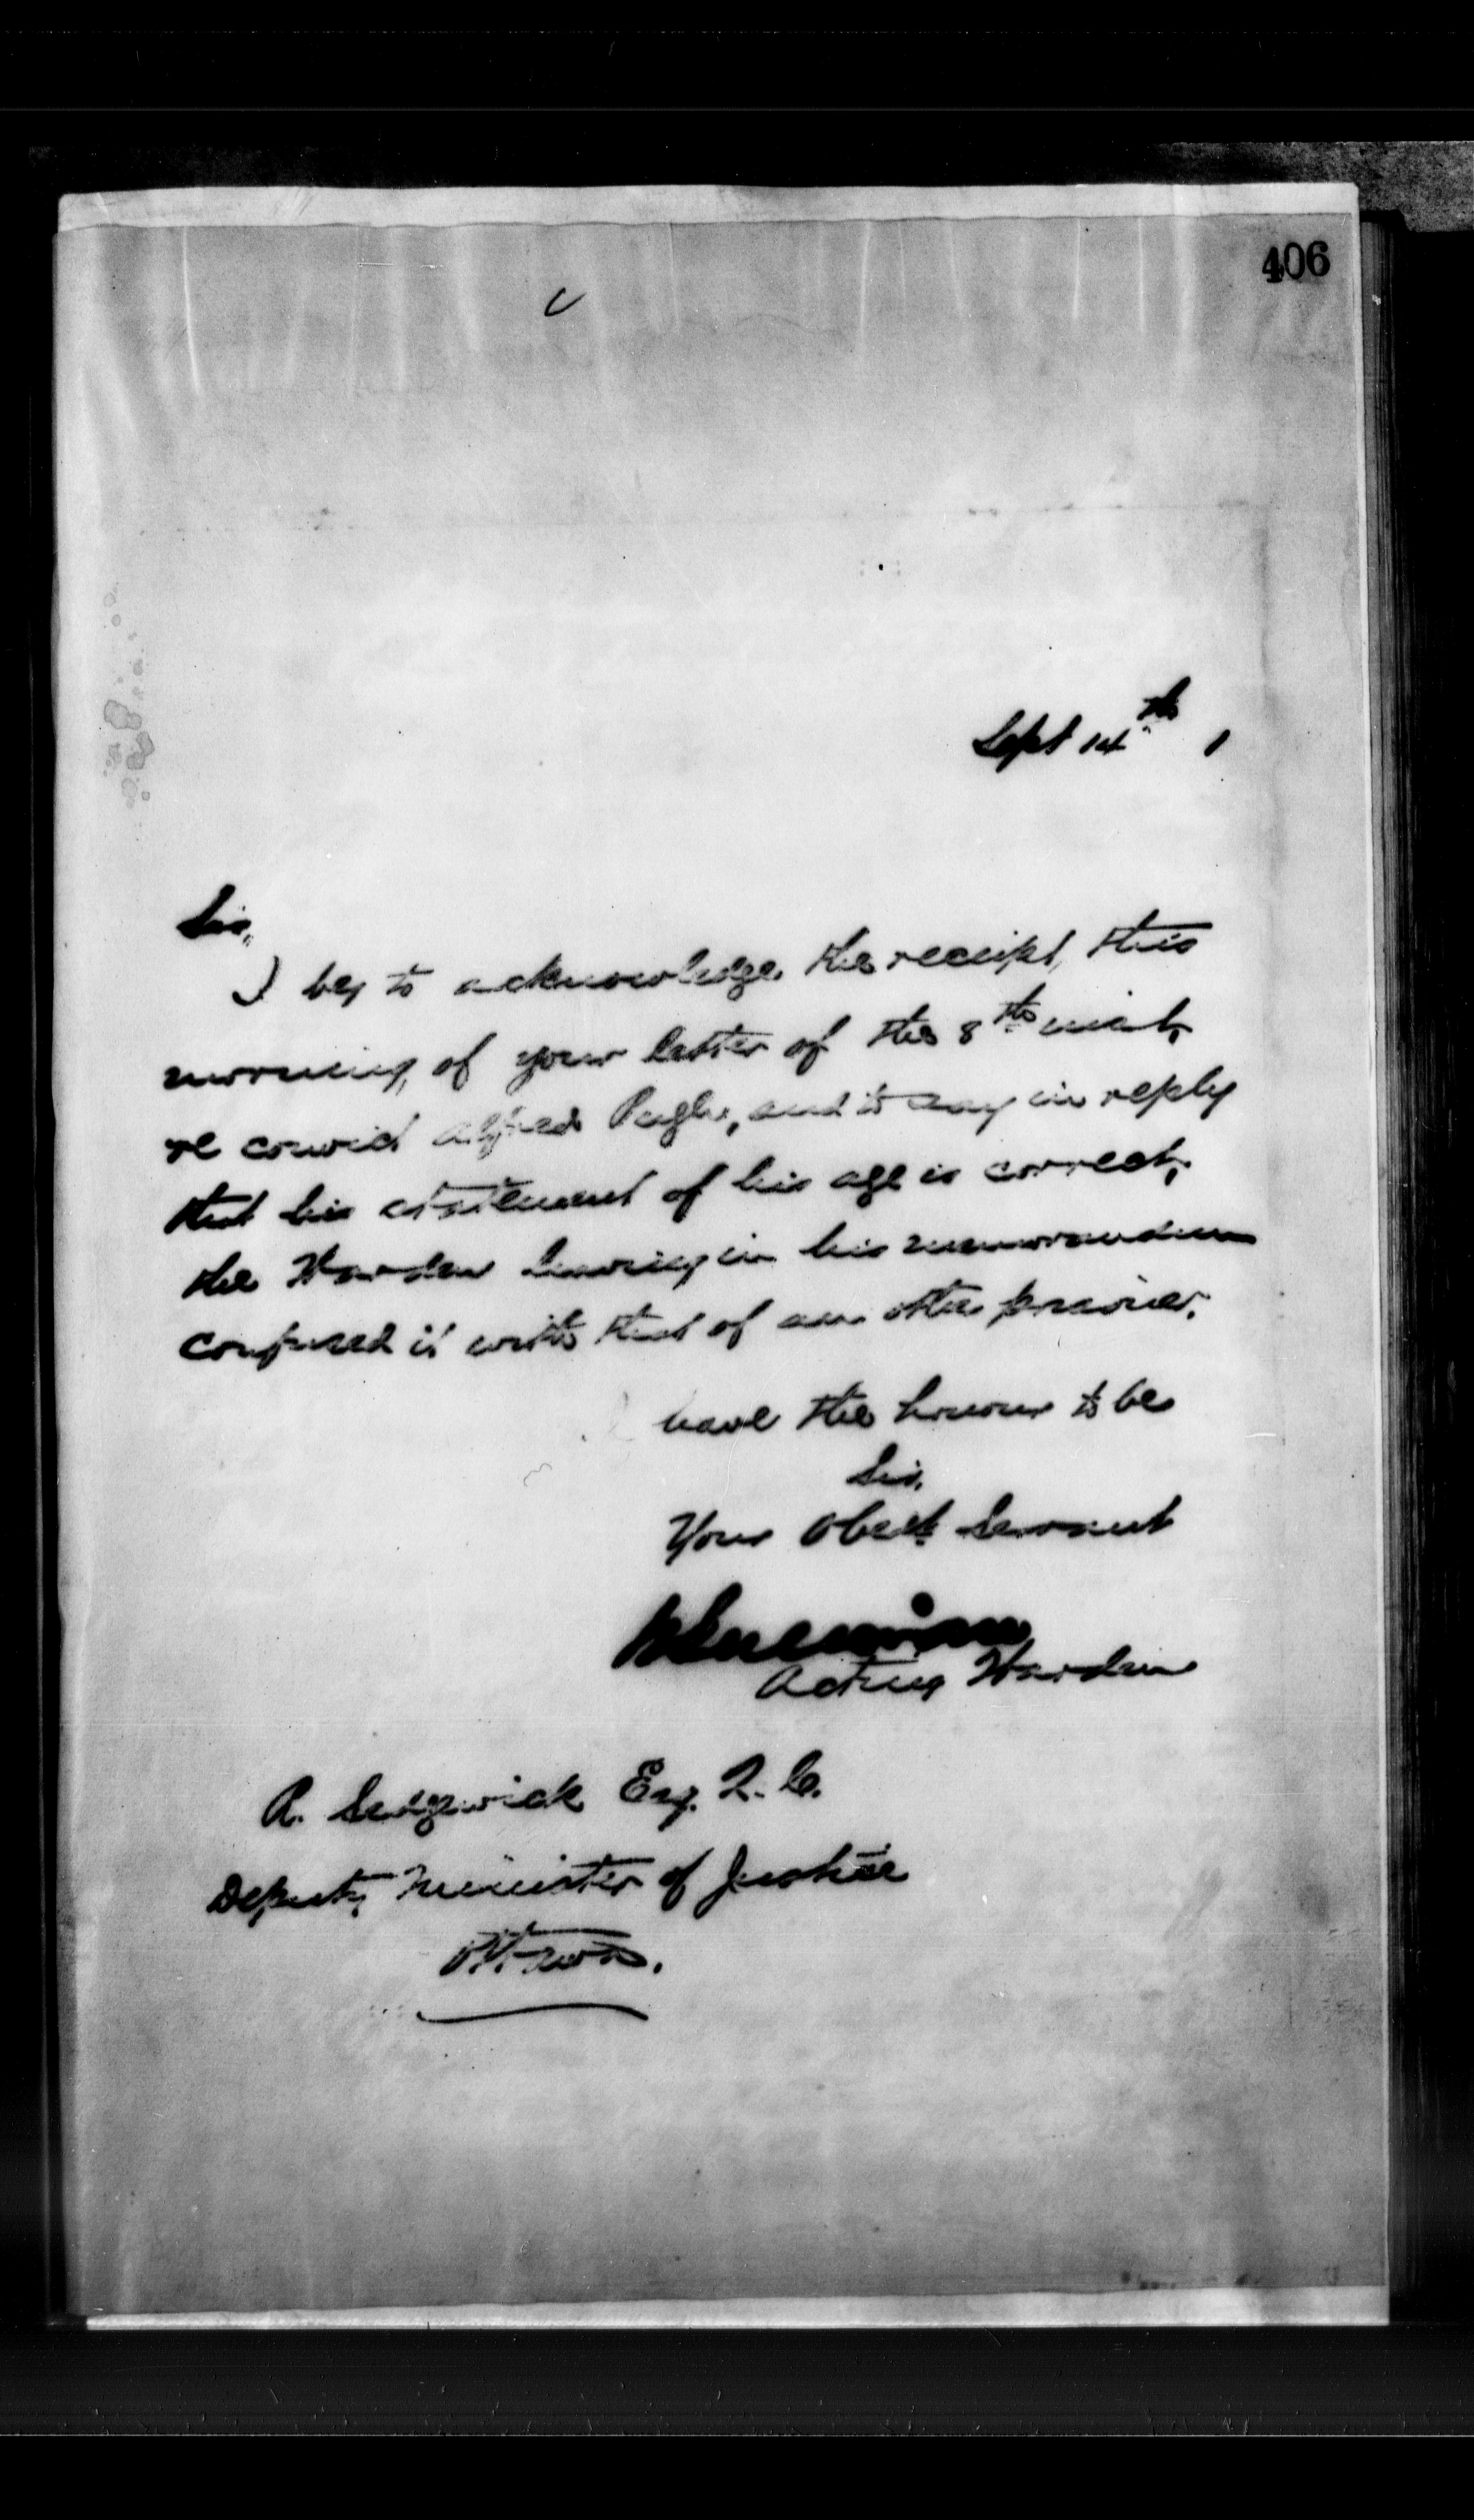 406
Sept 14th 1
Sir,
I beg to acknowledge the receipt, this
morning, of your letter of the 8th inst,
re convict Alfred Pugh, and to say in reply
that his statement of his age is correct,
the Warden having in his memorandum
confused it with that of an other prisoner.
I have the honour to be
Sir,
Your Obedt Servant
Acting Warden
R. Sedgewick Esq. Q.C.
Deputy Minister of Justice
Ottawa.